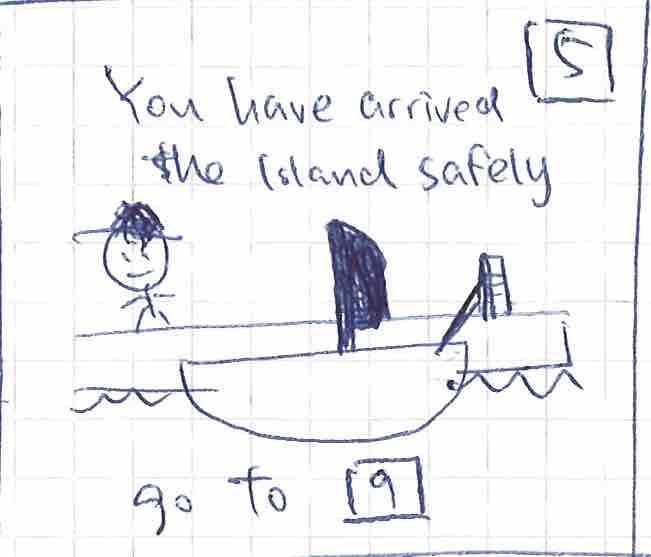 5
You have arrived
the Island safely
go to 9